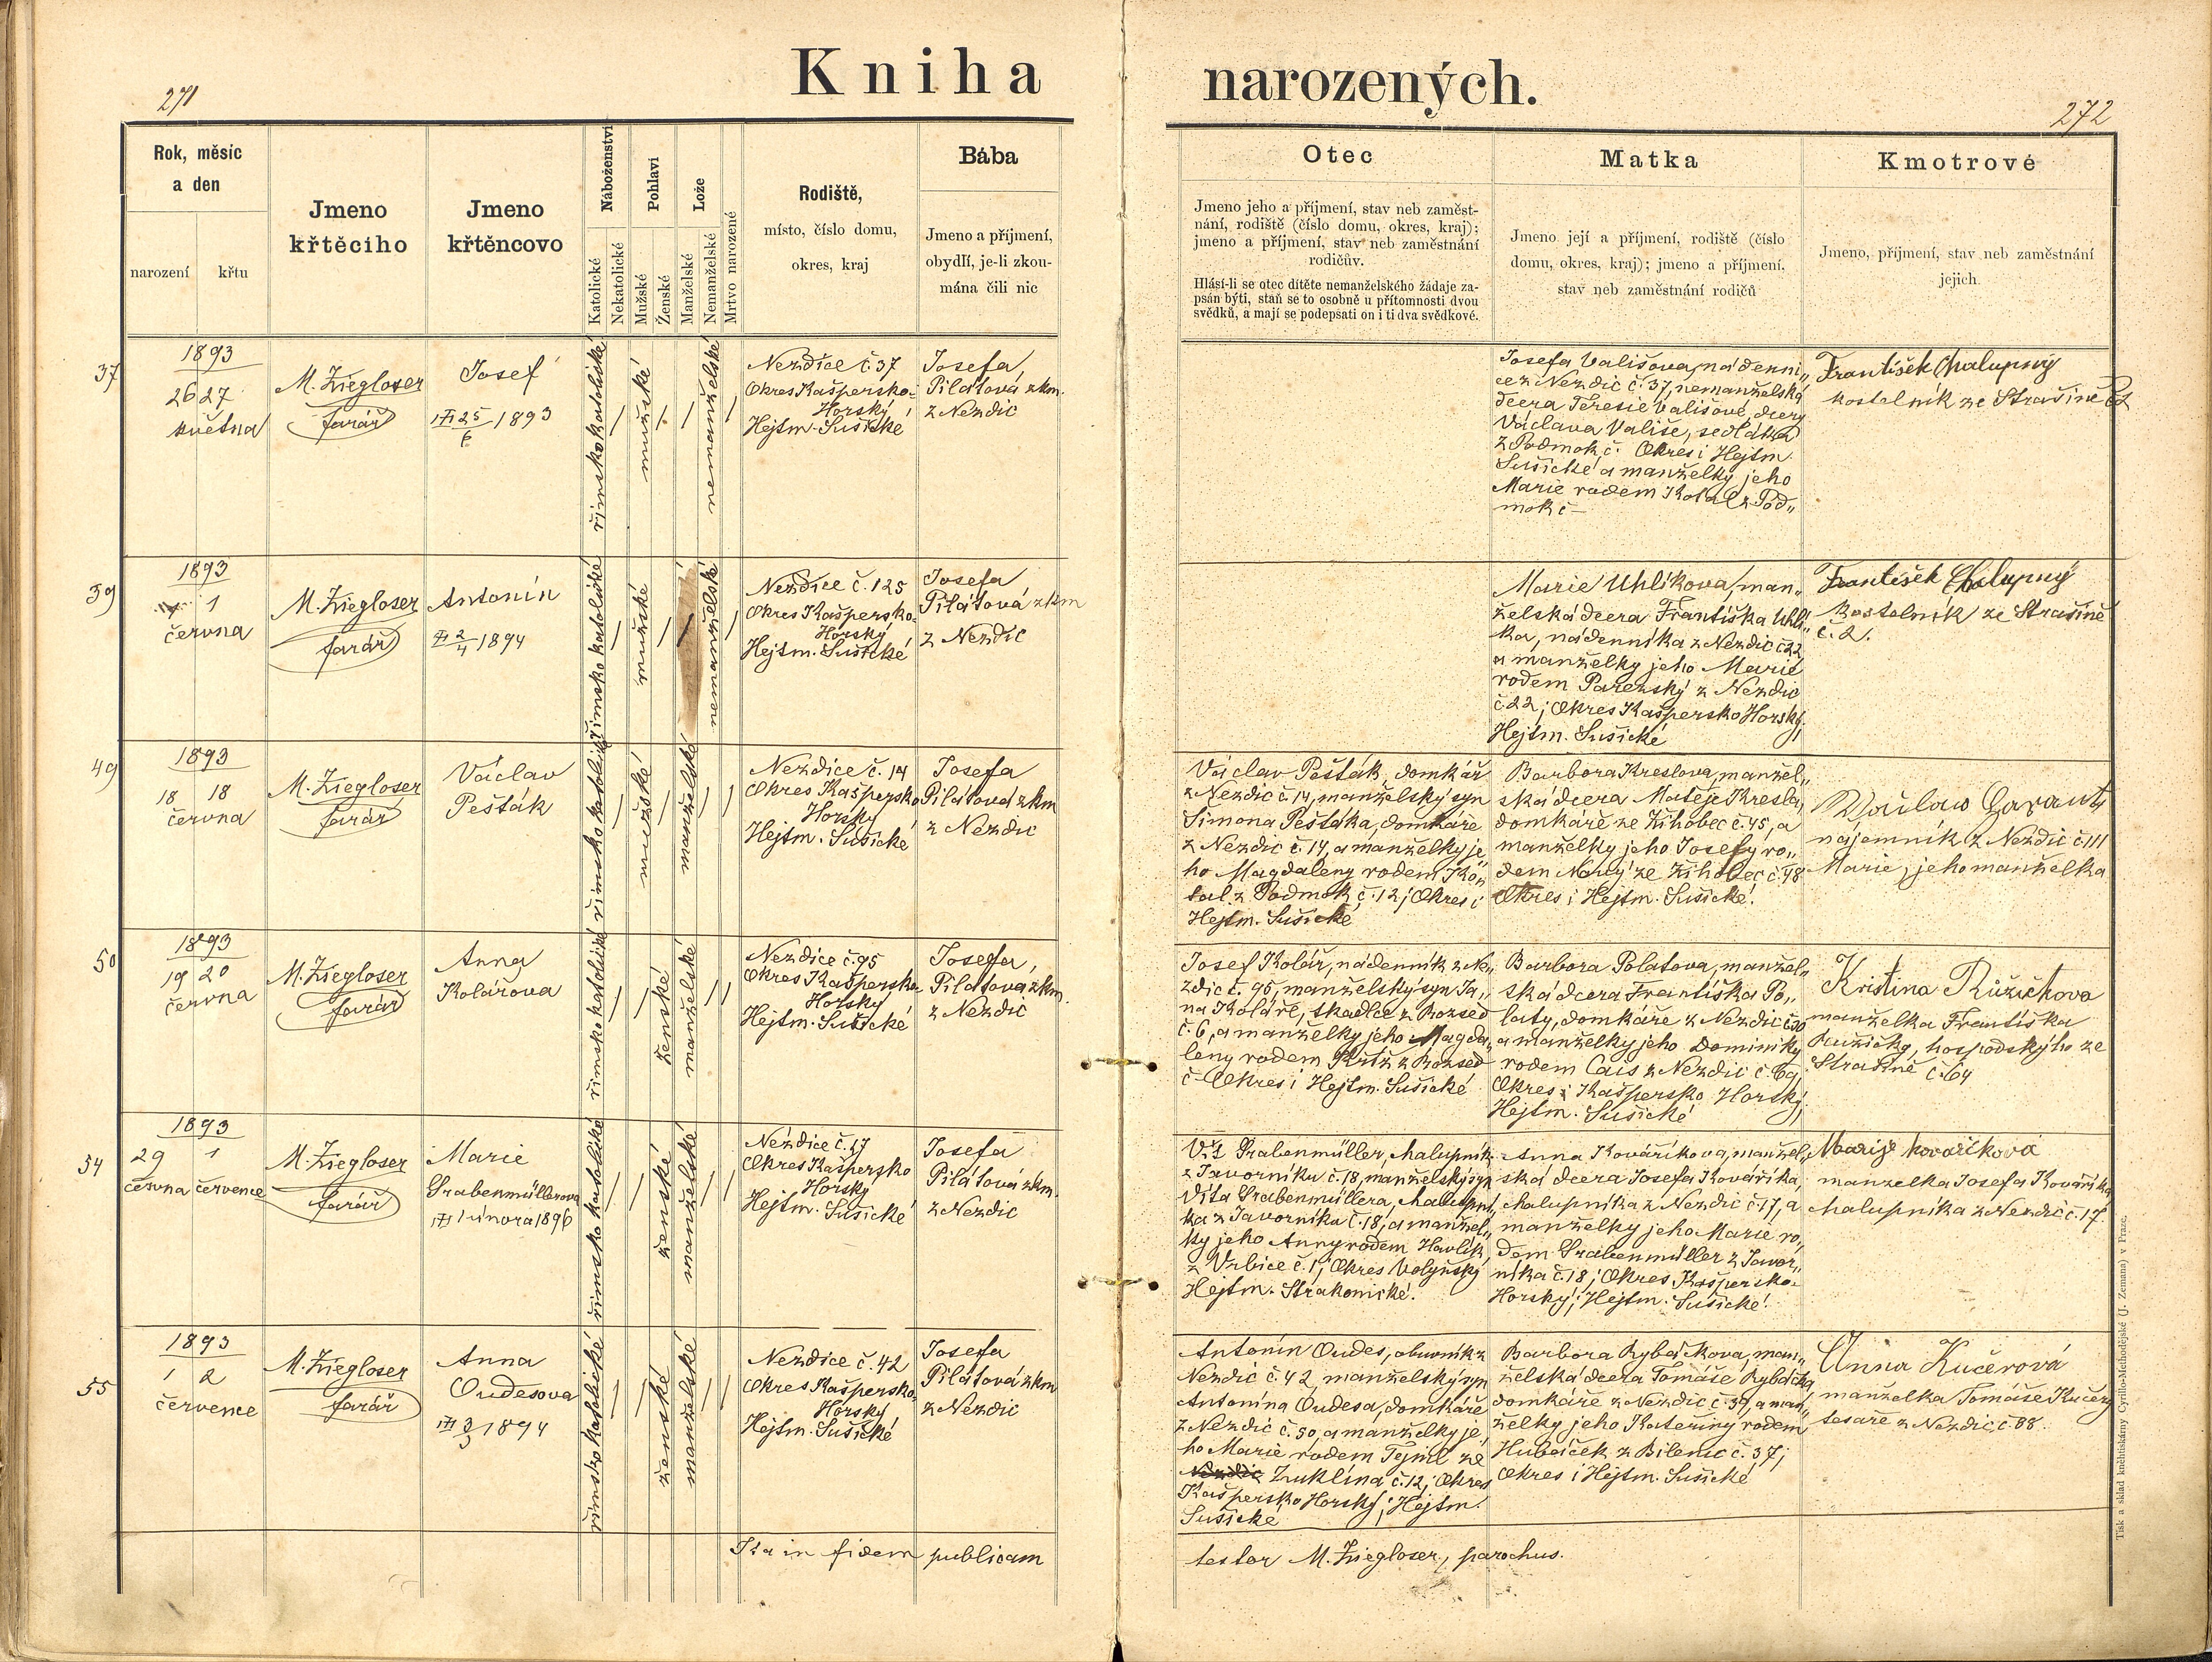 271
Kniha
narozených.
272
Rok, měsíc
a den
narození
křtu
Jmeno
křtěcího
Jmeno
křtěncovo
Náboženství
Katolické
Nekatolické
Pohlaví
Mužské
Ženské
Lože
Manželské
Nemanželské
Mrtvo narozené
Rodiště,
místo, číslo domu,
okres, kraj
Bába
Jmeno a příjmení,
obydlí, je-li zkou-
mána čili nic
Otec
Jmeno jeho a příjmení, stav neb zaměst-
nání, rodiště (číslo domu, okres, kraj);
jmeno a příjmení, stav neb zaměstnání
rodičův.
Hlásí-li se otec dítěte nemanželského žádaje za-
psán býti, staň se to osobně u přítomnosti dvou
svědků, a mají se podepsati on i ti dva svědkové.
Matka
Jmeno její a příjmení, rodiště (číslo
domu, okres, kraj); jmeno a příjmení,
stav neb zaměstnání rodičů
Kmotrové
Jmeno, příjmení, stav neb zaměstnání
jejich.
37
1893
26 27
května
M. Ziegloser
farář
Josef
25/6 1893
římsko katolické
mužské
nemanželské
Nezdice č. 37
Okres Kašpersko-
Horský
Hejtm. Sušické
Josefa
Pilátová zkm.
z Nezdic
Josefa Vališova, nádenni„
ce z Nezdic č. 37, nemanželská
dcera Teresie Vališové, dcery
Václava Vališe, sedláka
z Podmok, č. Okres i Hejtm.
Sušické a manželky jeho
Marie rodem Kotal z Pod„
mok č —
František Chalupný
kostelník ze Strašině č 2
39
1893
1
června
M. Ziegloser
farář
Antonín
2/4 1894
římsko katolické
mužské
nemanželské
Nezdice č. 125
Okres Kašpersko-
Horský
Hejtm. Sušické
Josefa
Pilátová zkm
z Nezdic
Marie Uhlíkova, man„
želská dcera Františka Uhlí„
ka, nádenníka z Nezdic č 22
a manželky jeho Marie
rodem Pařezský z Nezdic
č. 22; Okres Kašpersko Horský,
Hejtm. Sušické
František Chalupný
Kostelník ze Strašině
č. 2.
49
1893
18 18
června
M. Ziegloser
farář
Václav
Pešták
římsko katolické
mužské
manželské
Nezdice č. 14
Okres Kašpersko
Horský
Hejtm. Sušické
Josefa
Pilátová zkm
z Nezdic
Václav Pešták, domkář
z Nezdic č 14, manželský syn
Šimona Peštáka, domkáře
z Nezdic č. 14, a manželky je„
ho Magdaleny rodem Ko„
tal z Podmok č. 12; Okres i
Hejtm. Sušické
Barbora Kreslova, manžel„
ská dcera Matěje Kresla,
domkáře ze Žihobec č. 45, a
manželky jeho Josefy ro„
dem Nový ze Žihobec č. 48
Okres i Hejtm. Sušické.
nájemník z Nezdic č 111
Marie, jeho manželka
50
1893
19 20
června
M. Ziegloser
farář
Anna
Kolářova
římsko katolické
ženské
manželské
Nezdice č. 95
Okres Kašpersko-
Horský
Hejtm. Sušické
Josefa,
Pilátova zkm.
z Nezdic
Josef Kolář, nádenník z Ne„
zdic č. 95, manželský syn Ja„
na Koláře, tkadlce z Rozsed
č. 6, a manželky jeho Magda„
leny rodem z Rozsed
č- Okres i Hejtm. Sušické
Barbora Polatova, manžel„
ská dcera Františka Po„
laty, domkáře z Nezdic č 90
a manželky jeho Dominiky
rodem Cais z Nezdic č.
Okres: Kašpersko Horský,
Hejtm. Sušické
Kristina Růžičkova
manželka Františka
Ružičky, hospodského ze
Strašině č. 64
54
1893
29 1
června července
M. Ziegloser
farář
Marie
Grabenmüllerova
1 února 1896
římsko katolické
ženské
manželské
Nezdice č. 17
Okres Kašpersko
Horský
Hejtm. Sušické
Josefa
Pilátová zkm.
z Nezdic
Vít Grabenmüller, chalupník
z Javorníku č. 18, manželský syn
Víta Grabenmüllera, chalupní„
ka z Javorníka č. 18, a manžel„
ky jeho Anny rodem Havlík,
z Vrbice č. 1; Okres Volyňský
Hejtm. Strakonické.
Anna Kováříkova, manžel„
ská dcera Josefa Kováříka,
chalupníka z Nezdic č. 17, a
manželky jeho Marie ro„
dem Grabenmüller z Javor„
níka č. 18; Okres Kašpersko-
Horský; Hejtm. Sušické.
Marije kovaříková
manzelka Josefa Kováříka
chalupníka z Nezdic č. 17.
55
1893
1 2
července
M. Ziegloser
farář
Anna
Oudesova
3/3 1894
římsko katolické
ženské
manželské
Nezdice č. 42
Okres Kašpersko-
Horský
Hejtm. Sušické
Josefa
Pilátová zkm
z Nezdic
Antonín Oudes, obuvník z
Nezdic č. 42, manželský syn
Antonína Oudesa, domkáře
z Nezdic č. 50, a manželky je„
ho Marie rodem Tejml ze
Nezdic Zuklína č. 12; Okres
Kašpersko Horský; Hejtm.
Sušické
Barbora Rybáčkova, man„
želská dcera Tomáše Rybáčka,
domkáře z Nezdic č. 39, a man„
želky jeho Kateřiny rodem
Hubáček z Bilenic č. 37;
Okres i Hejtm. Sušické
Anna Kučerová
manželka Tomáše Kučery
tesaře z Nezdic, č. 88.
Ita in fidem publicam
testor M. Ziegloser, parochus.
Tisk a sklad knihtiskárny Cyrillo-Methodějské (J. Zeman) v Praze.